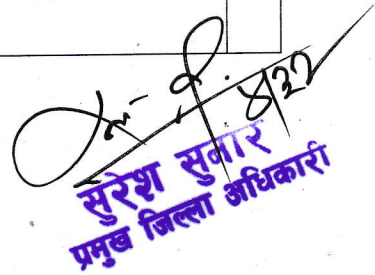 ४/२२
सुरेश सुनार
प्रमुख जिल्ला अधिकारी